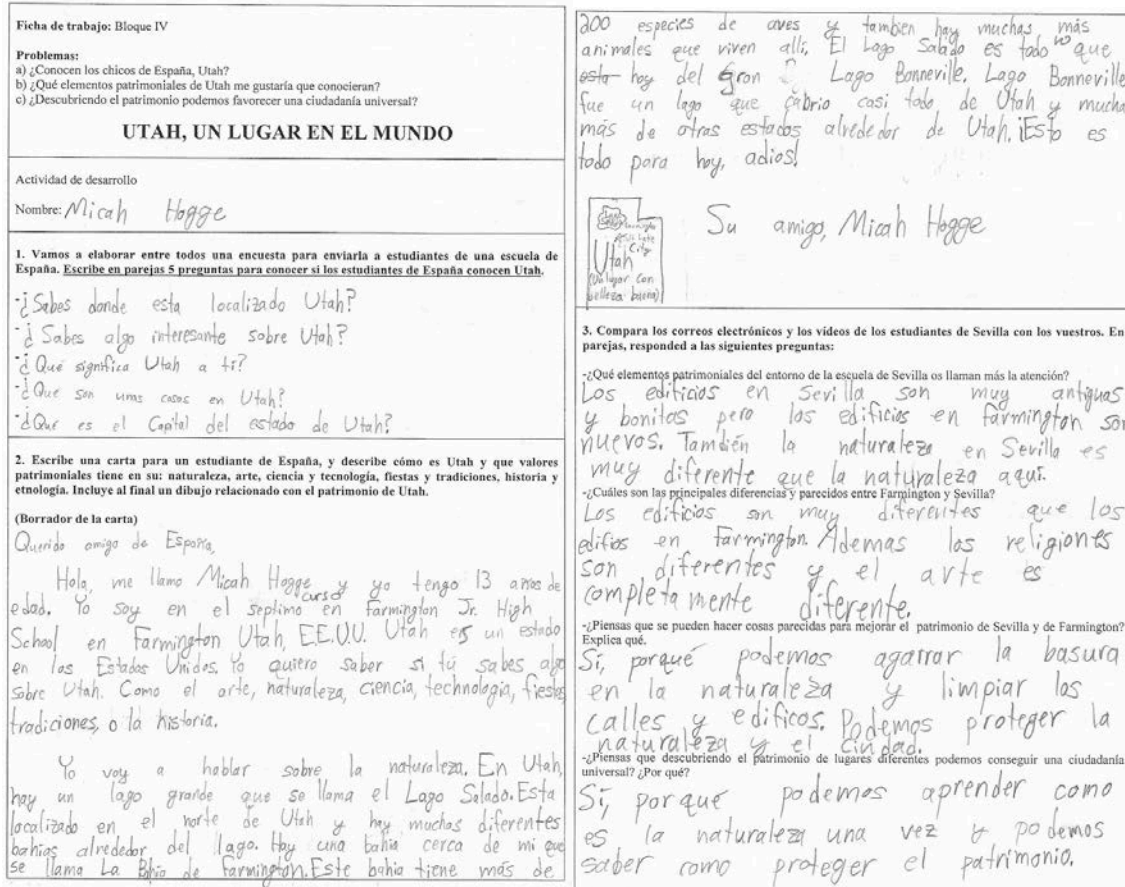 Ficha de trabajo: Bloque IV
Problemas:
a) ¿Conocen los chicos de España, Utah?
b) ¿Qué elementos patrimoniales de Utah me gustaría que conocieran?
c) ¿Descubriendo el patrimonio podemos favorecer una ciudadanía universal?
UTAH, UN LUGAR EN EL MUNDO
Actividad de desarrollo
Nombre: Micah Hogge
1. Vamos a elaborar entre todos una encuesta para enviarla a estudiantes de una escuela de
España. Escribe en parejas 5 preguntas para conocer si los estudiantes de España conocen Utah.
-¿Sabes donde esta localizado Utah?
-¿Sabes algo interesante sobre Utah?
-¿Qué significa Utah a ti?
-¿Que son unas cosas en Utah?
-¿Que es el Capital del estado de Utah?
2. Escribe una carta para un estudiante de España, y describe cómo es Utah y que valores
patrimoniales tiene en su: naturaleza, arte, ciencia y tecnología, fiestas y tradiciones, historia y
etnología. Incluye al final un dibujo relacionado con el patrimonio de Utah.
(Borrador de la carta)
Querido amigo de España,
Hola, me llamo Micah Hogge y yo tengo 13 años de
edad. Yo soy en el septimo curso en Farmington Jr. High
School en Farmington Utah, E.E.U.U. Utah es un estado
en los Estados Unidos. Yo quiero saber si tú sabes algo
sobre Utah. Como el arte, naturaleza, ciencia, technologia, fiestas
tradiciones, o la historia.
Yo voy a hablar sobre la naturaleza. En Utah,
hay un lago grande que se llama el Lago Salado. Esta
localizado en el norte de Utah y hay muchas diferentes
bahias alrededor del lago. Hay una bahia cerca de mi que
se llama La Bhia de Farmington. Este bahia tiene más de
200 especies de aves y tambien hay muchas más
animales que viven alli. El Lago Salado es todo lo que
esta hoy del Gron Lago Bonneville. Lago Bonneville
fue un lago que cabrio casi todo de Utah y mucha
más de otras estados alrededor de Utah. ¡Esto es
todo para hoy, adios!
Su amigo, Micah Hogge
Lake
City
Utah
(Un lugar con
belleza buena)
3. Compara los correos electrónicos y los videos de los estudiantes de Sevilla con los vuestros. En
parejas, responded a las siguientes preguntas:
-¿Qué elementos patrimoniales del entorno de la escuela de Sevilla os llaman más la atención?
Los edificios en Sevilla son muy antiguas
y bonitas pero los edificios en farmington son
nuevos. También la naturaleza en Sevilla es
muy diferente que la naturaleza aquí.
-¿Cuáles son las principales diferencias y parecidos entre Farmington y Sevilla?
Los edificios son muy diferentes que los
edifios en Farmington. Ademas las religiones
son diferentes y el arte es
completamente diferente.
-¿Piensas que se pueden hacer cosas parecidas para mejorar el patrimonio de Sevilla y de Farmington?
Explica qué.
Si, porqué podemos agarrar la basura
en la naturaleza y limpiar las
calles y edificos. Podemos proteger la
naturaleza y el ciudad.
-¿Piensas que descubriendo el patrimonio de lugares diferentes podemos conseguir una ciudadanía
universal? ¿Por qué?
Si, porqué podemos aprender como
es la naturaleza una vez y podemos
saber como proteger el patrimonio.